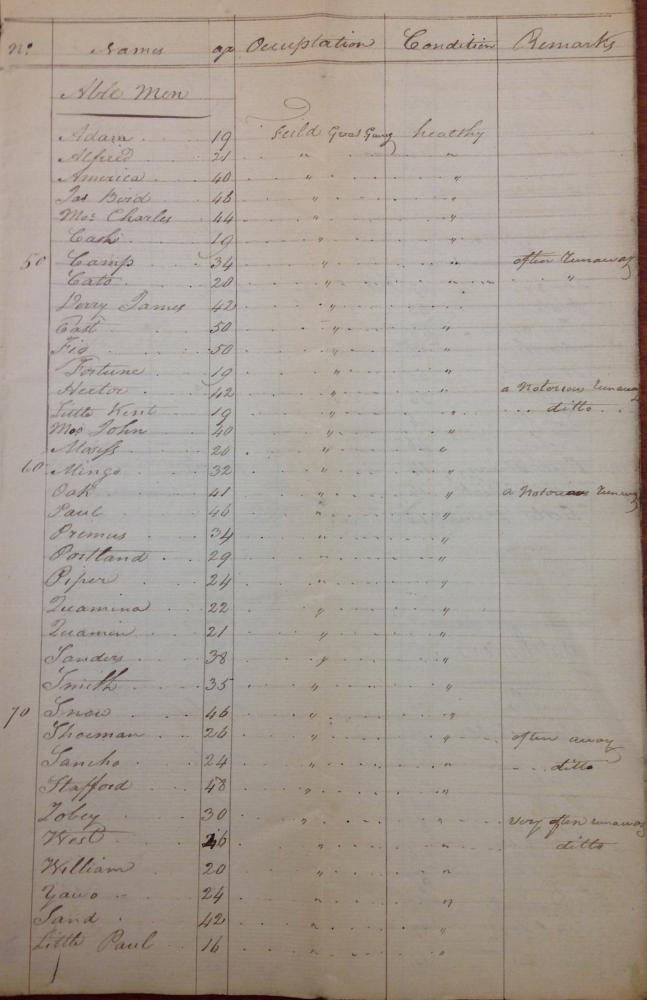 No. Names age Occupation Condition Remarks
Able Men
Adam 19 Field Great Gang healthy
Alfred 21 " "
America 40 " "
Jas Bird 46 " "
Mos Charles 44 " "
Cash 19 " "
50 Camp 34 " " often runaway
Cato 20 " " "
Perry James 42 "
East 50 " "
Fig 50 " "
Fortune 19 " "
Hector 42 " " a Notorious runaway
Little Kent 19 " " ditto
Mos John 40 " "
Moriss 20 " "
60 Mingo 32 " "
Oak 41 " " a Notorious runaway
Paul 46 " "
Premus 34 " "
Portland 29 " "
Piper 24 " "
Quamina 22 " "
Quamin 21 " "
Sanders 38 " "
Smith 35 " "
70 Snow 46 " "
Shoeman 26 " " often away
Sancho 24 " " ditto
Stafford 48 " "
Tobey 30 " " very often runaway
West 46 " " ditto
William 20 " "
Yawo 24 " "
Sand 42 " "
Little Paul 16 " "